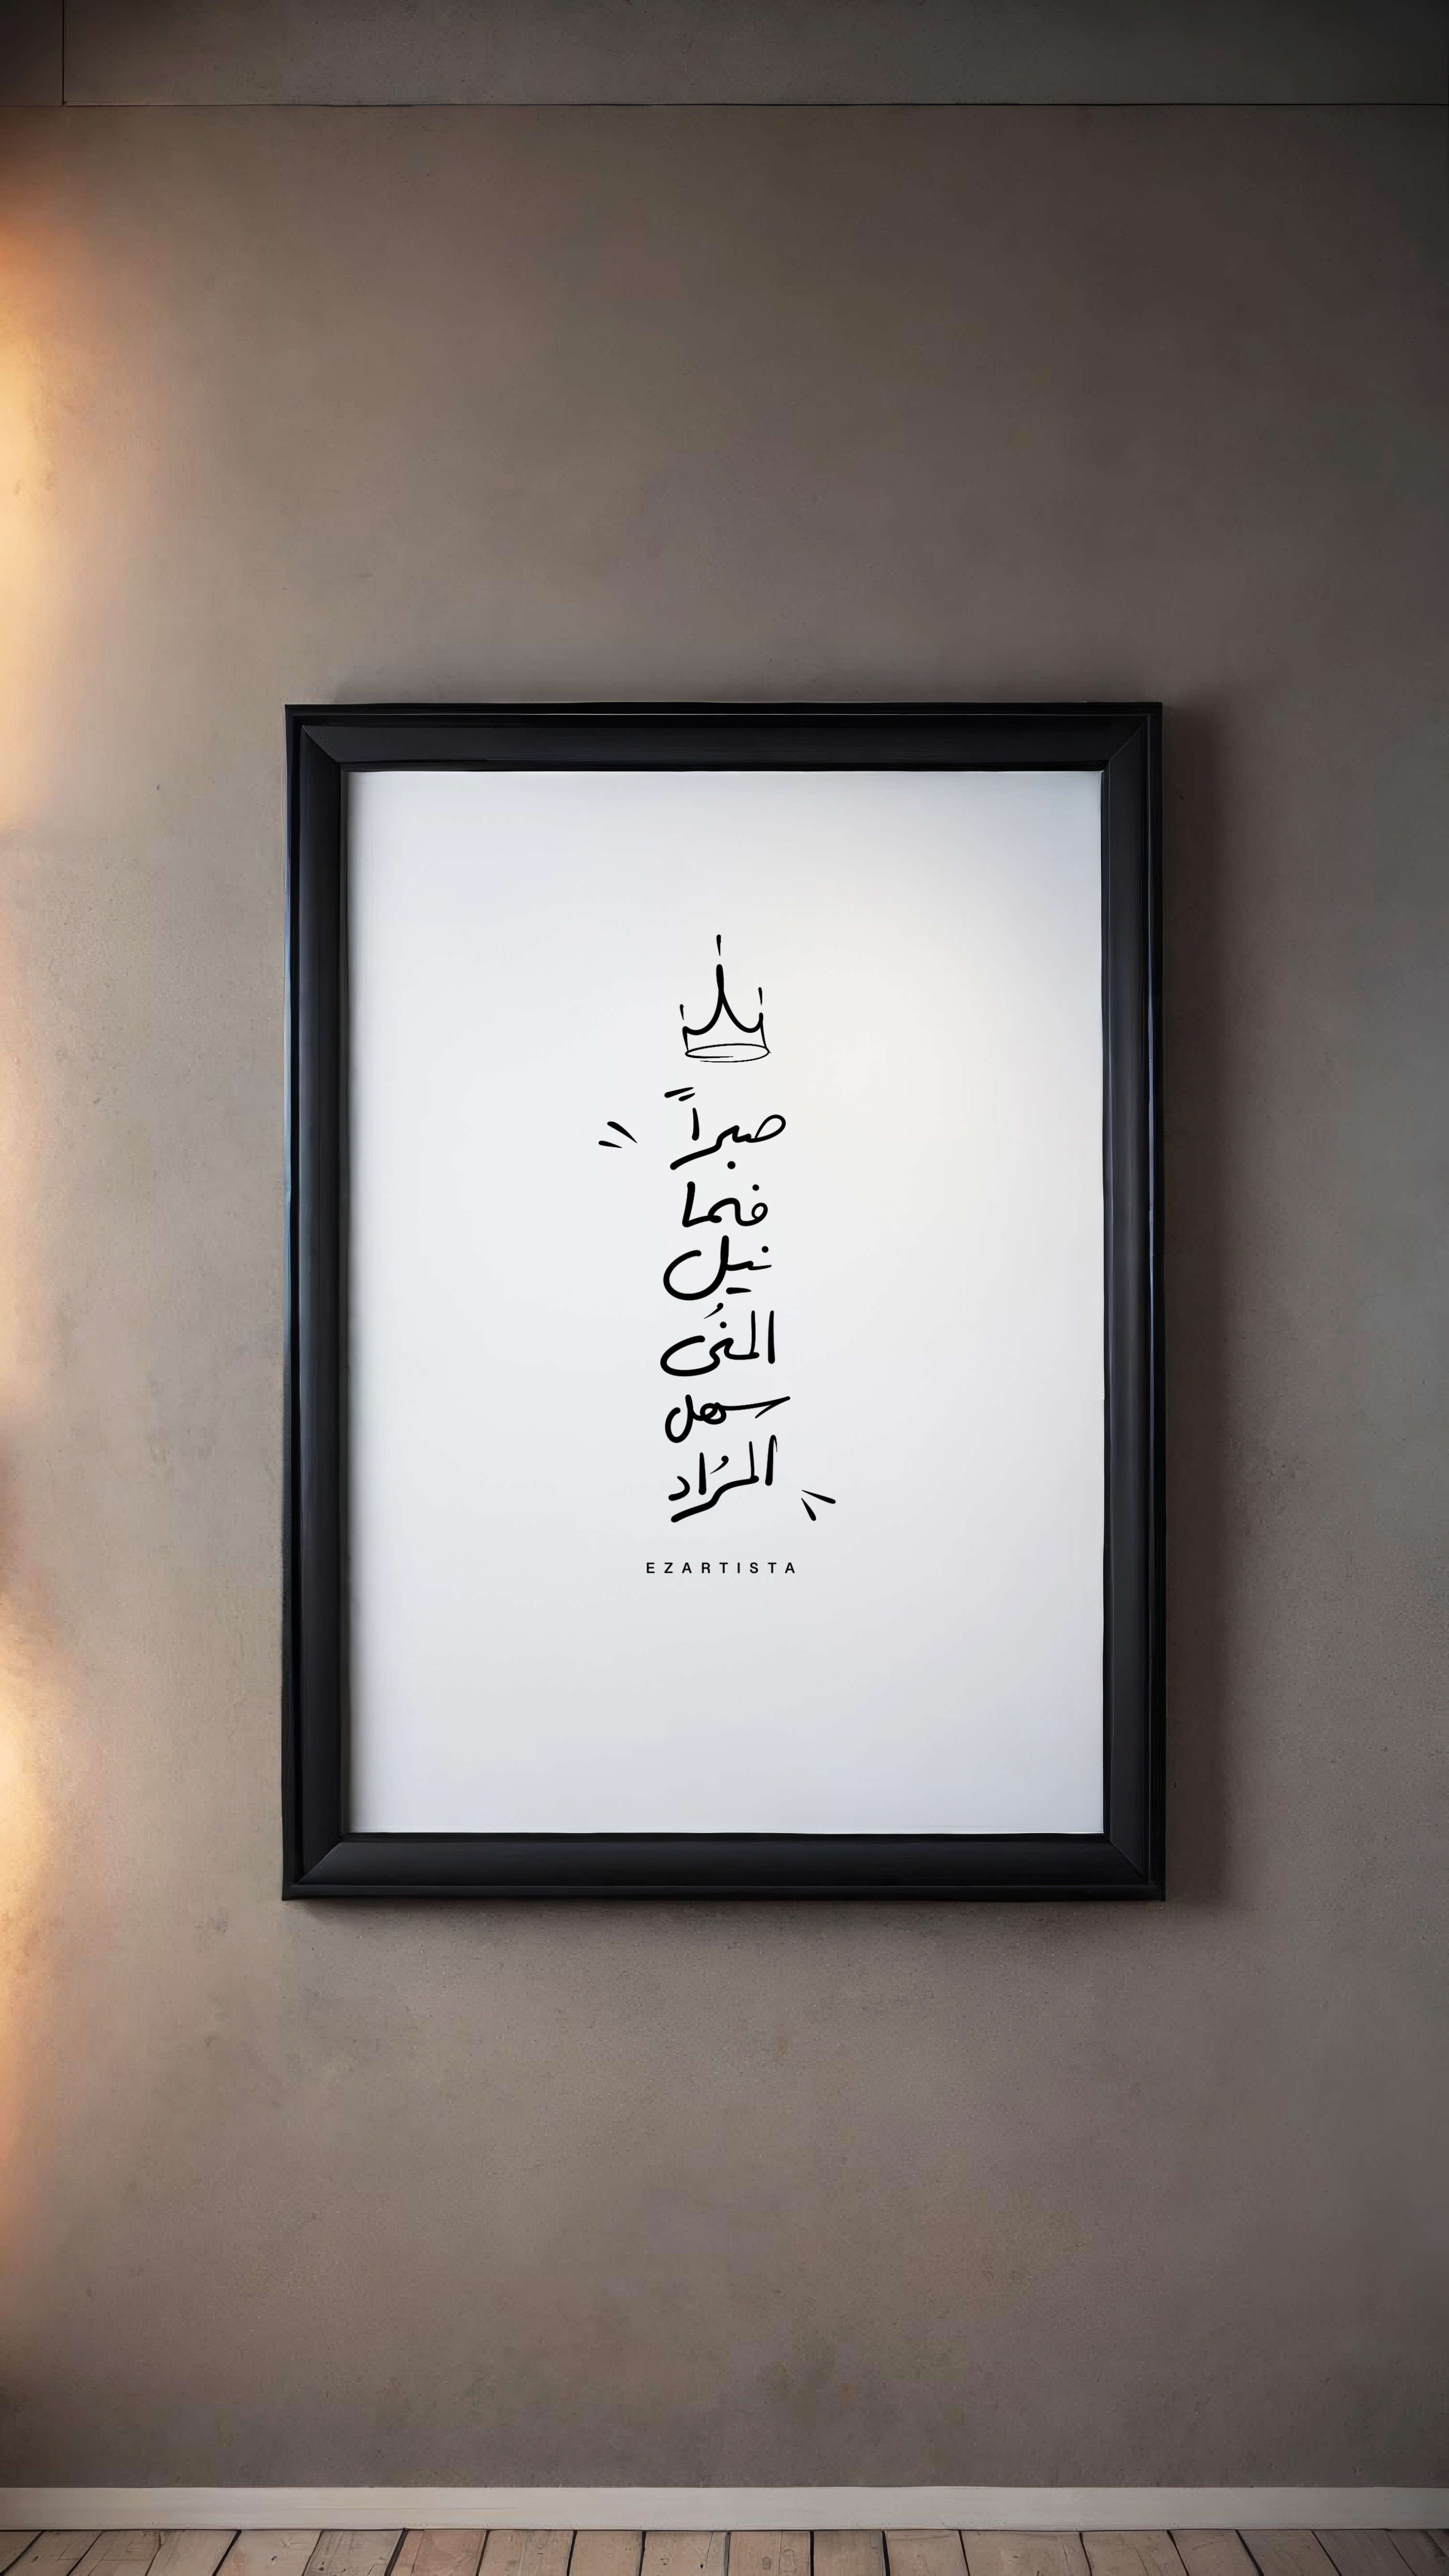 صبراً
فما
نيل
المنُى
سهل
المُراد
EZARTISTA